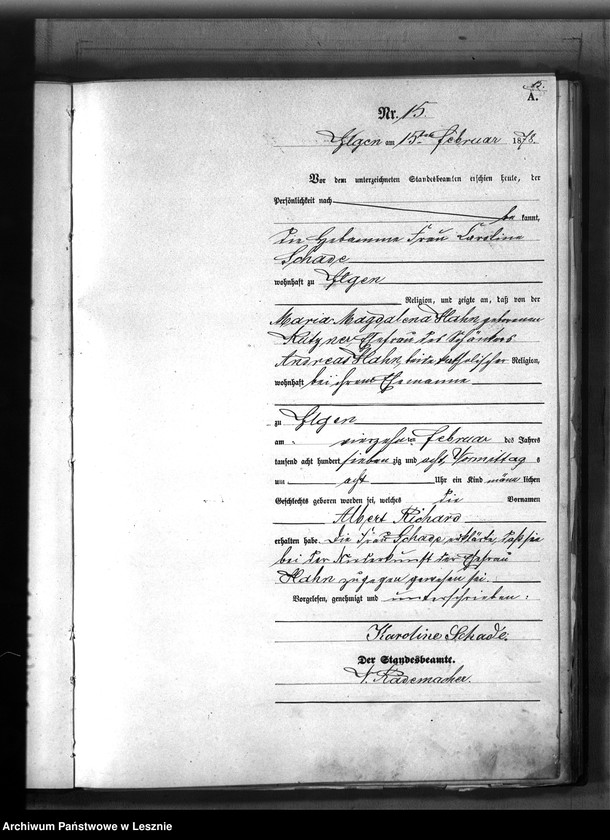 15.
A.
Nr. 15.
Ilgen am 15ten Februar 1878.
Vor dem unterzeichneten Standesbeamten erschien heute, der
Persönlichkeit nach
be kannt,
die Hebamme Frau Caroline
Schade
wohnhaft zu Ilgen
Religion, und zeigte an, daß von der
Maria Magdalena Hahn geborenen
Ratzner Ehefrau des
Andreas Hahn, beide katholischer Religion,
wohnhaft bei ihrem Ehemanne
zu Ilgen
am vierzehn Februar des Jahres
tausend acht hundert sieben zig und acht, Vormittag s
um acht Uhr ein Kind männ lichen
Geschlechts geboren worden sei, welches die Vornamen
Albert Richard
erhalten habe. Die Frau Schade erklärte, daß sie
bei der Niederkunft der Ehefrau
Hahn zugegen gewesen sei.
Vorgelesen, genehmigt und unterschrieben:
Karoline Schade.
Der Standesbeamte.
Rademacher.
Archiwum Państwowe w Lesznie